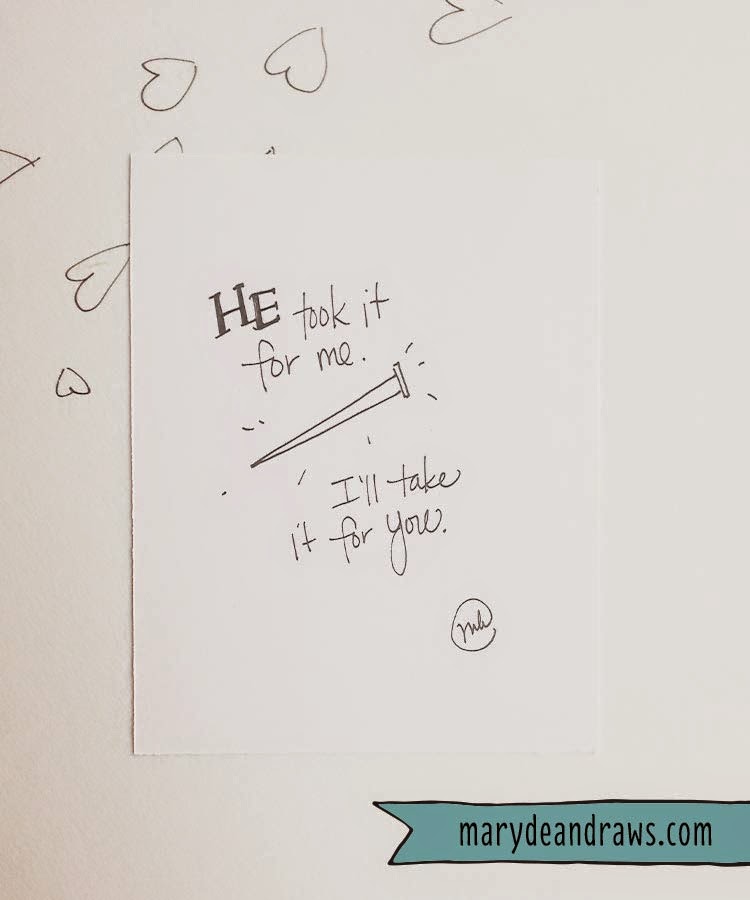 HE took it
for me.
I'll take
it for you.
marydeandraws.com